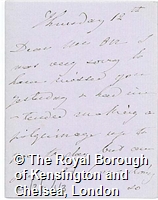 Thursday 12th
Dear Mrs
I
was very sorry
to have missed you
yesterday & had in-
tended making a
pilgrimage up to
but
© The Royal Borough
of Kensington and
Chelsea, London
so